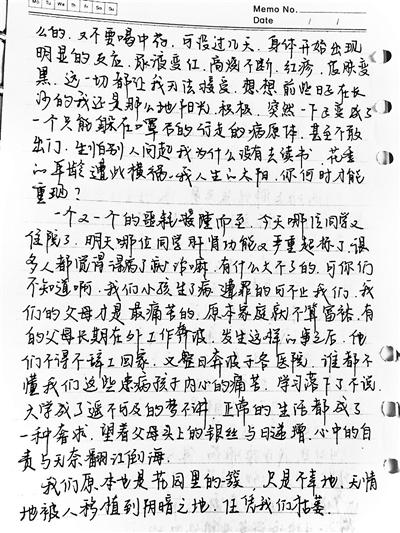 Mo Tu We Th Fr Sa Su
Memo No.
Date / /
么的,又不要喝中药,可没过几天,身体开始出现
明显的反应,尿液变红,高烧不断,红疹,皮肤变
黑,这一切都让我无法接受,想想前些日子在长
沙的我还是那么地阳光,积极,突然一下子变成了
一个只能躲在口罩后的行走的病原体,甚至不敢
出门,生怕别人问起我为什么没有去读书,花季
的年龄遭此横祸,我人生的太阳,你何时才能
重现?
一个又一个的噩耗接踵而至,今天哪位同学又
住院了,明天哪位同学肝肾功能又严重超标了,很
多人都觉得得病了就治嘛,有什么大不了的,可你们
不知道啊,我们小孩生了病遭罪的可不止我们,我
们的父母才是最痛苦的,原本家庭就不算富裕,有
的父母长期在外工作奔波,发生这样的事之后,他
们不得不辞工回家,又整日奔波于各医院,谁都不
懂我们这些患病孩子内心的痛苦,学习落下了不说,
大学成了遥不可及的梦不讲,正常的生活都成了
一种奢求,望着父母头上的银丝与日递增,心中的自
责与无奈翻江倒海.
我们原本也是花园里的 只是不幸地,无情
地被人移植到阴暗之地,任凭我们枯萎.